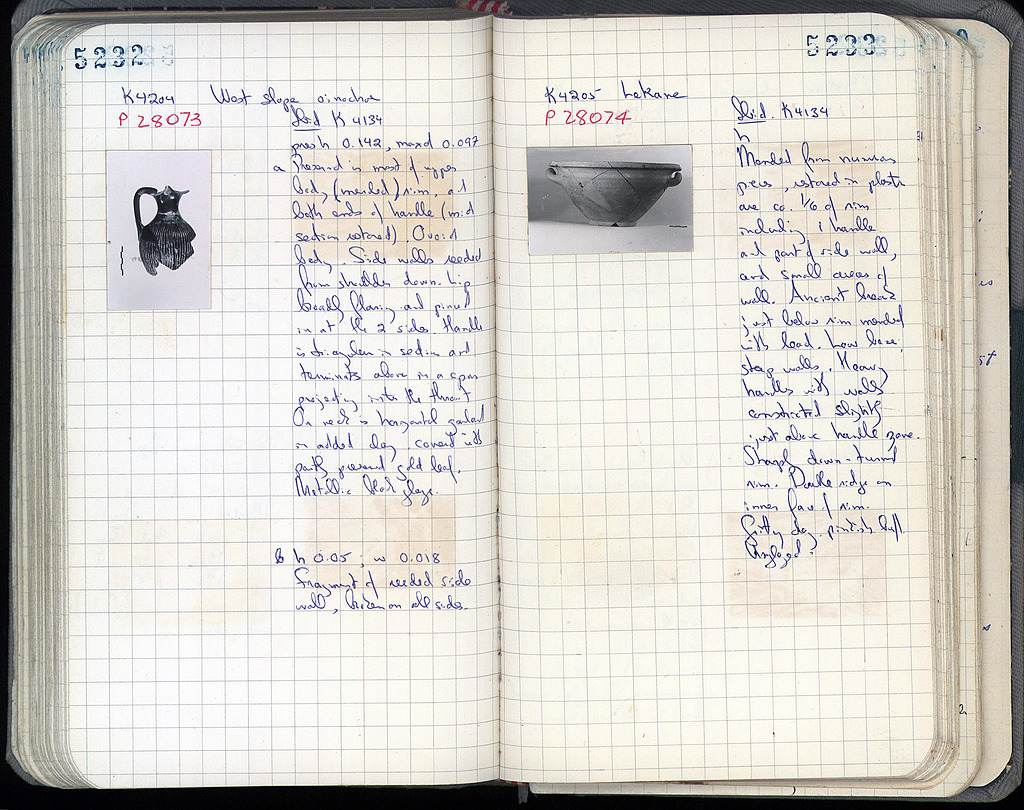 5232
K4204 West slope oinochoe
P 28073
Ibid K 4134
pres h 0.142, max d 0.097
a Preserved is most of upper
body (mended), rim, and
both ends of handle (mid
section restored). Ovoid
body. Side walls reeded
from shoulder down. Lip
broadly flaring and pinched
in at the 2 sides. Handle
is triangular in section and
terminates above in a spur
projecting into the throat
On neck is horizontal garland
in added clay covered with
partly preserved gold leaf.
Metallic black glaze.
B h 0.05; w 0.018
Fragment of reeded side
wall, broken on all sides.
5233
K4205 Lekane
P 28074
Ibid. K4134
h
Mended from numerous
pieces, restored in plaster
are ca. 1/6 of rim
including 1 handle
and part of side wall,
and small areas of
wall. Ancient break
just below rim mended
with lead. Low base,
steep walls. Heavy
handles with walls
constricted slightly
just above handle zone.
Sharply down-turned
rim. Double ridge on
inner face of rim.
Gritty clay, pinkish buff.
Unglazed.